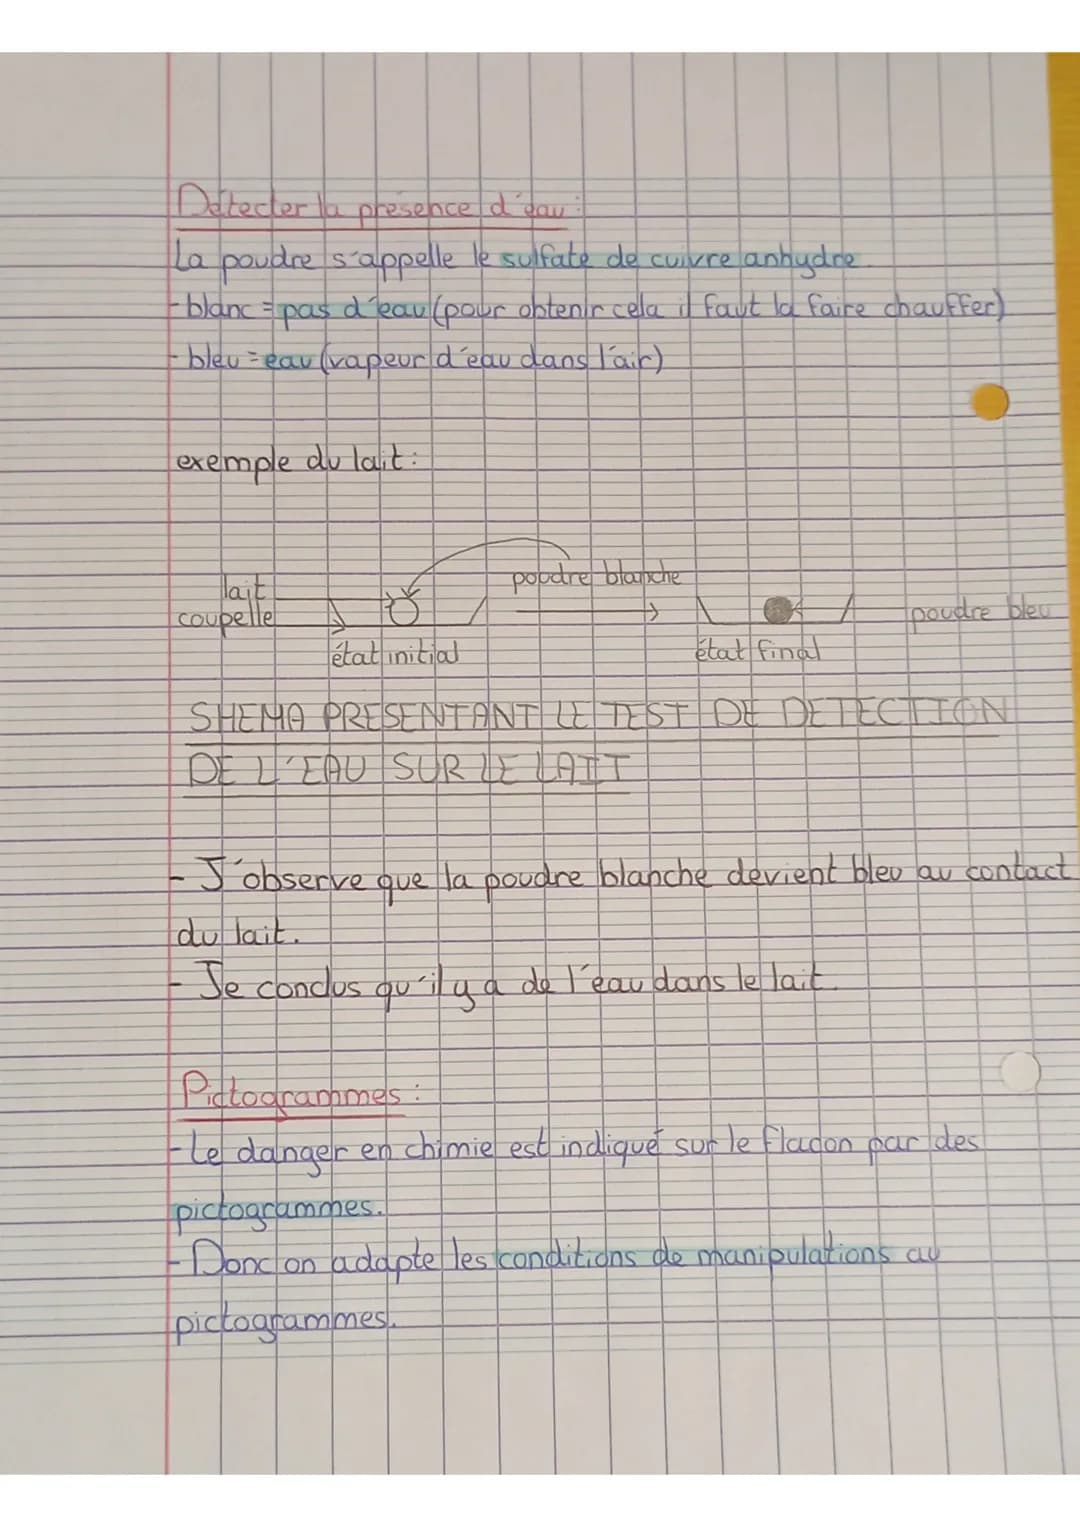 Détecter la présence d'eau :
La poudre s'appelle le sulfate de cuivre anhydre.
- blanc = pas d'eau (pour obtenir cela il faut la faire chauffer)
- bleu = eau (vapeur d'eau dans l'air)
exemple du lait :
poudre blanche
lait
coupelle
poudre bleu
état initial
état final
SHEMA PRESENTANT LE TEST DE DETECTION
DE L'EAU SUR LE LAIT
- J'observe que la poudre blanche devient bleu au contact
du lait.
- Je conclus qu'il y a de l'eau dans le lait.
Pictogrammes :
- Le danger en chimie est indiqué sur le flacon par des
pictogrammes.
- Donc on adapte les conditions de manipulations au
pictogrammes.